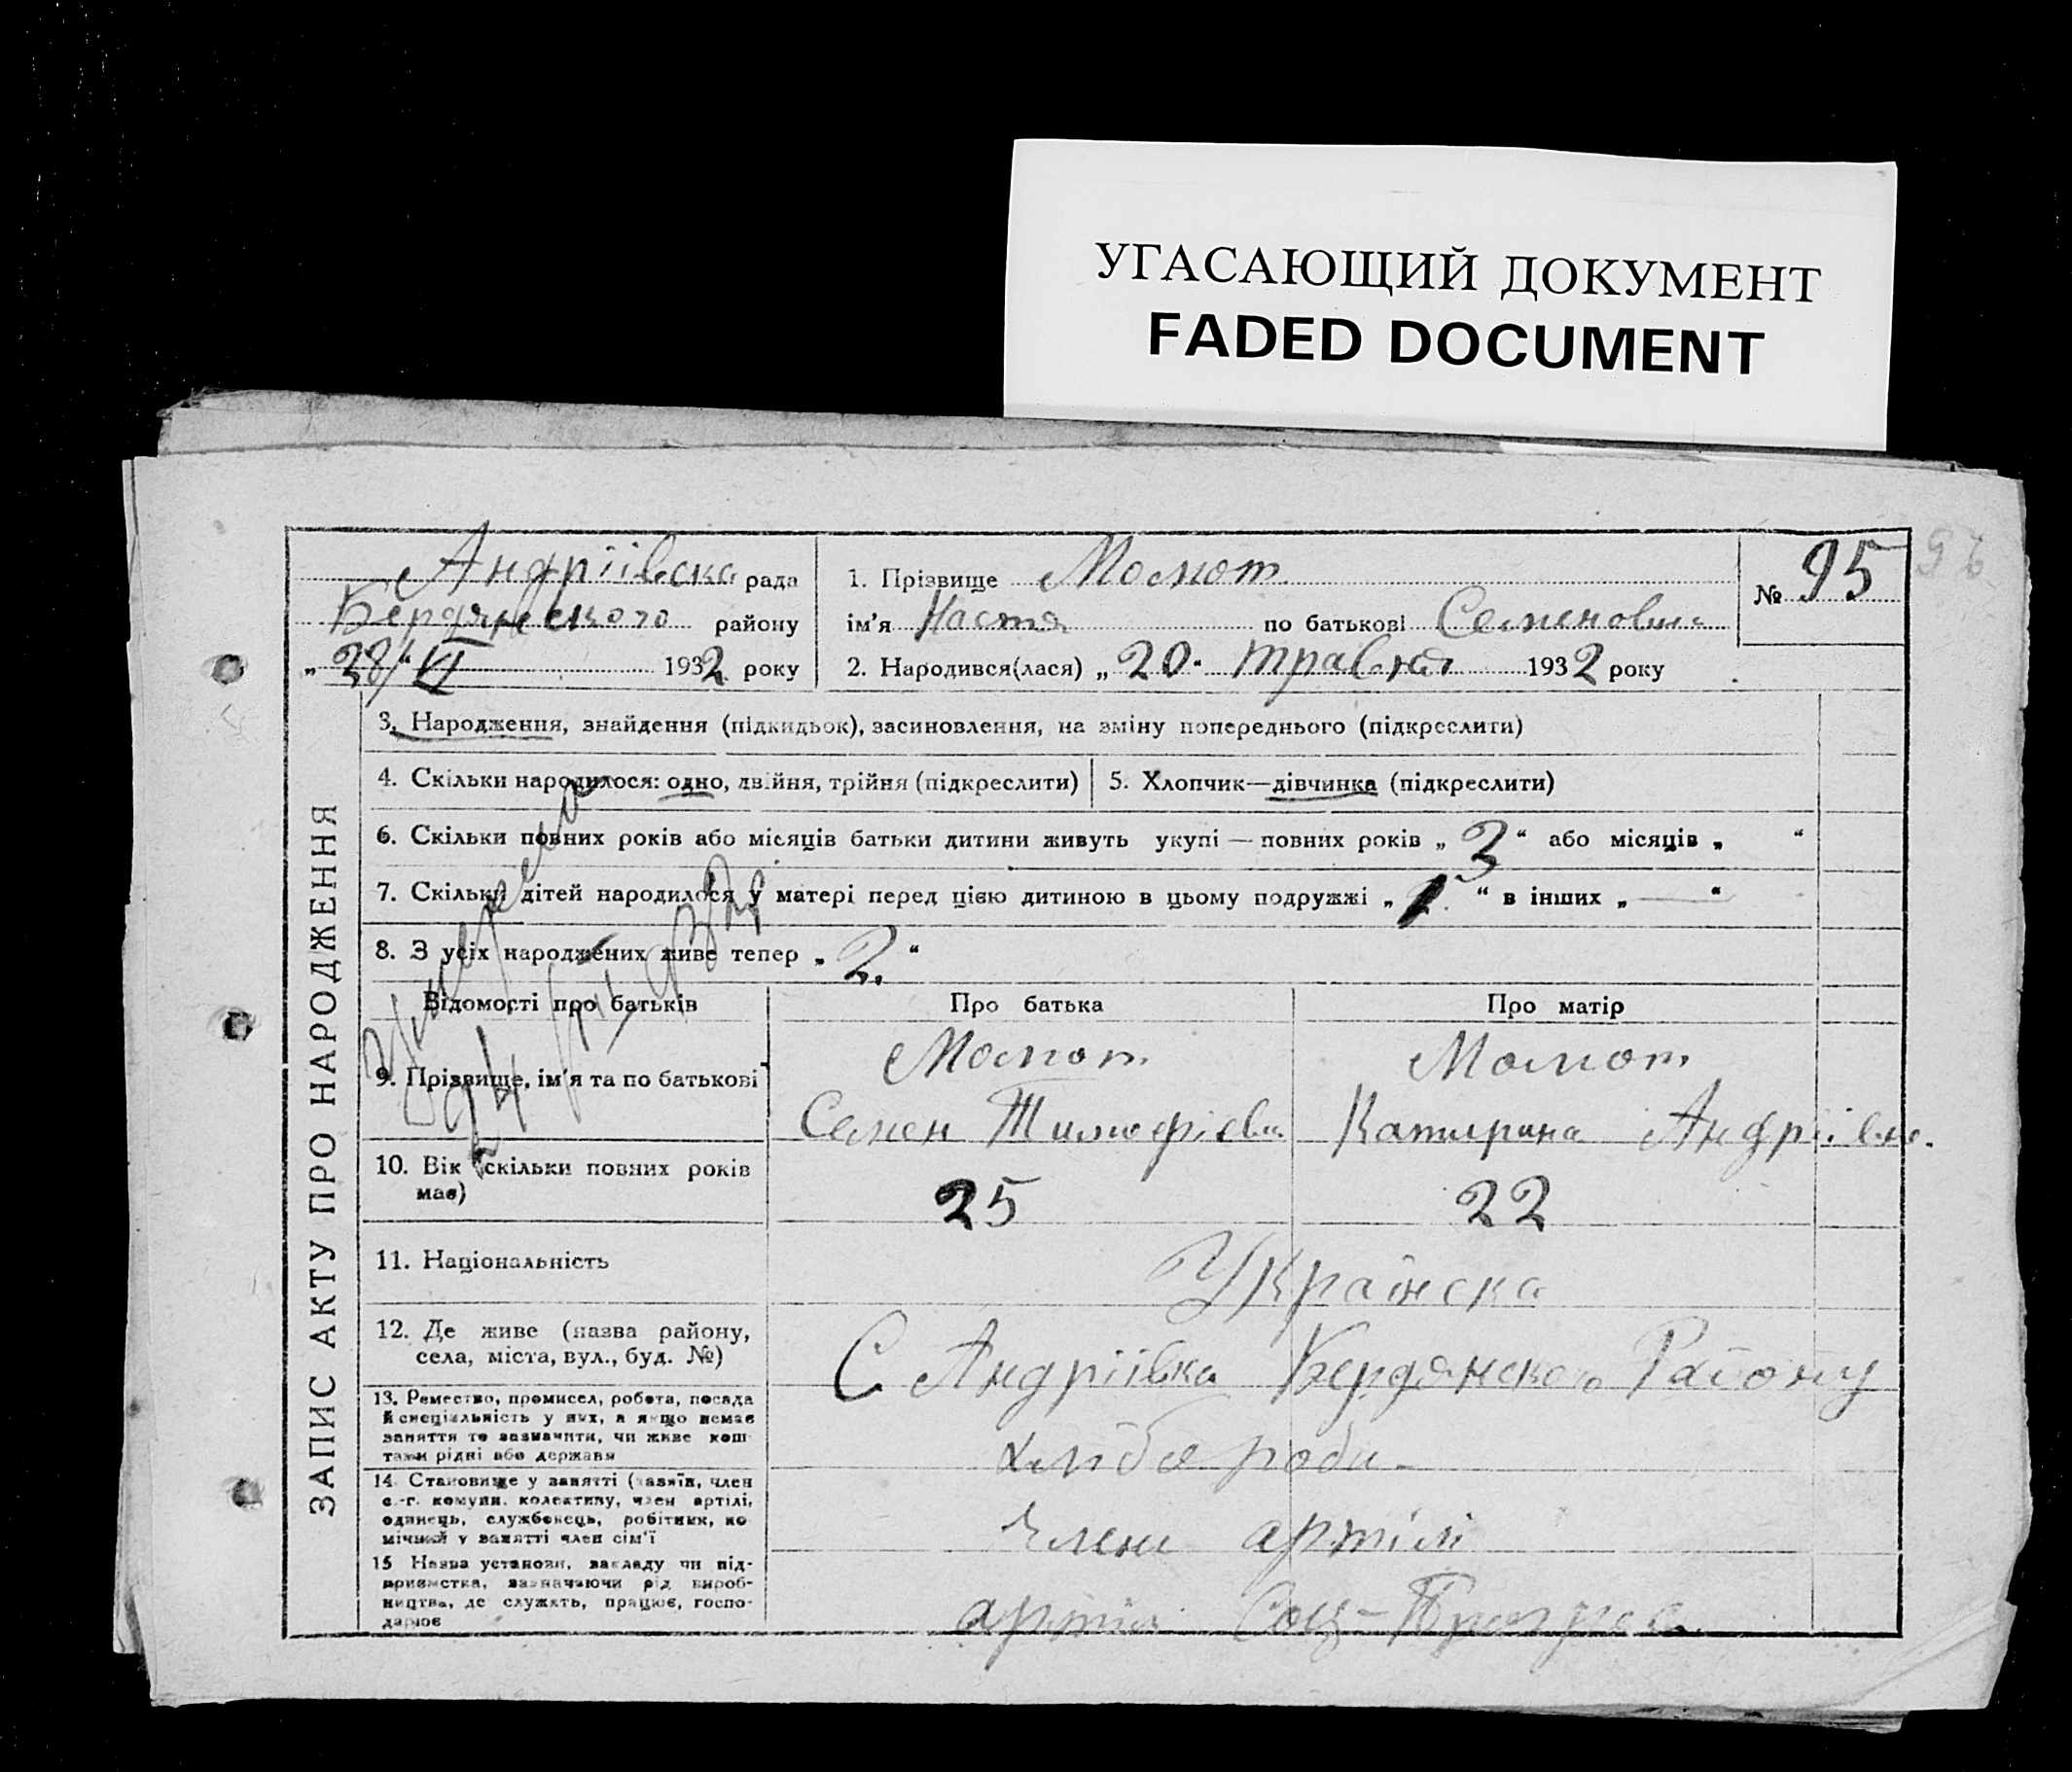 УГАСАЮЩИЙ ДОКУМЕНТ
FADED DOCUMENT
96
Андріівска рада
Бердянського району
„ 28/VI 1932 року
1. Прізвище Момот
ім’я Настя по батькові Семеновна
2. Народився(лася) „ 20. травня 1932 року
№ 95
ЗАПИС АКТУ ПРО НАРОДЖЕННЯ
3. Народження, знайдення (підкидьок), засиновлення, на зміну попереднього (підкреслити)
4. Скільки народилося: одно, двійня, трійня (підкреслити)
5. Хлопчик—дівчинка (підкреслити)
6. Скільки повних років або місяців батьки дитини живуть укупі — повних років „ 3 “ або місяців „ “
7. Скільки дітей народилося у матері перед цією дитиною в цьому подружжі „ “ в інших „ — “
8. З усіх народжених живе тепер „ 2. “
Відомості про батьків
Про батька
Про матір
9. Прізвище, ім’я та по батькові
Момот
Семен Тимофієви
Момот
Катирина Андріівна.
10. Вік (скільки повних років
має)
25
22
11. Національність
Українска
12. Де живе (назва району,
села, міста, вул., буд. №)
С Андріівка Бердянского Району
13. Ремество, промисел, робота, посада
й спеціяльність у них, а якщо немає
заняття то зазначити, чи живе кош-
тами рідні або держави
хлібороби
14. Становище у занятті (хазяїн, член
с.-г. комуни, колективу, член артілі,
одинець, службовець, робітник, по-
мічний у занятті член сім’ї
члени артілі
15 Назва установи, закладу чи під-
приємства, зазначаючи рід вироб-
ництва, де служать, працює, госпо-
дарює
артіль Соц-Прогрес